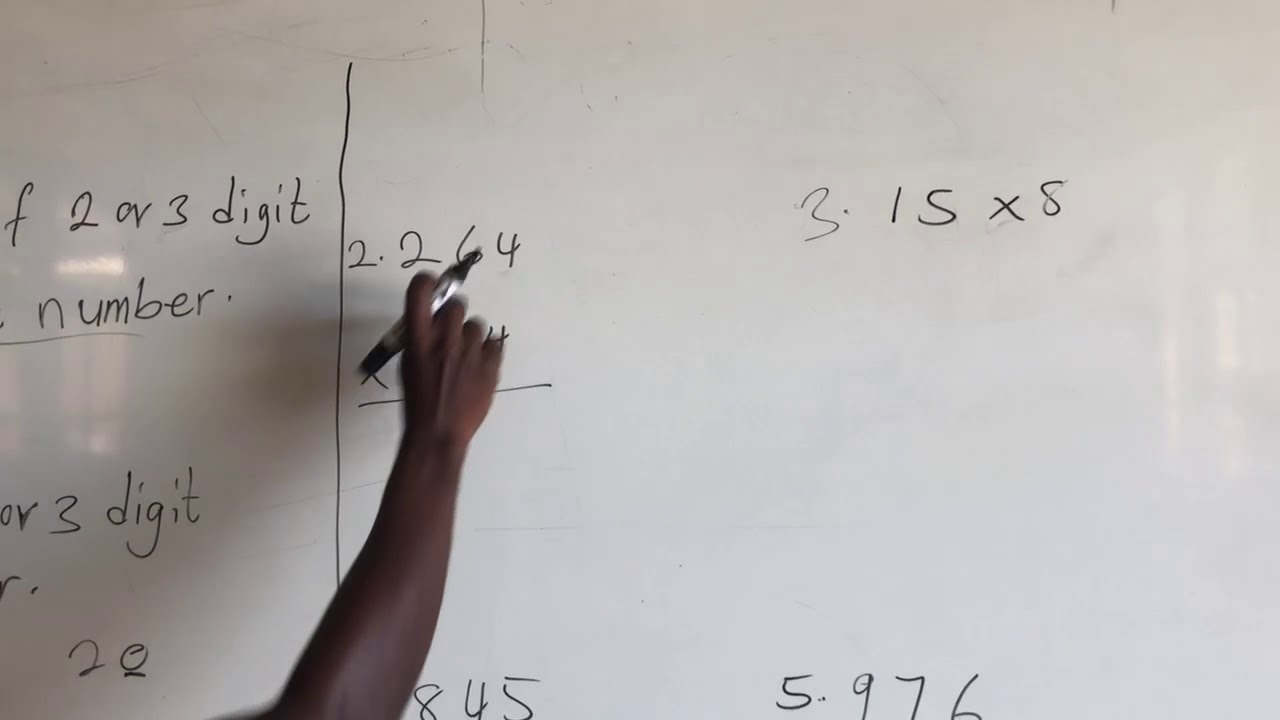 f 2 or 3 digit
number.
or 3 digit
r.
20
2. 264
4
x
3. 15 x 8
845
5. 976